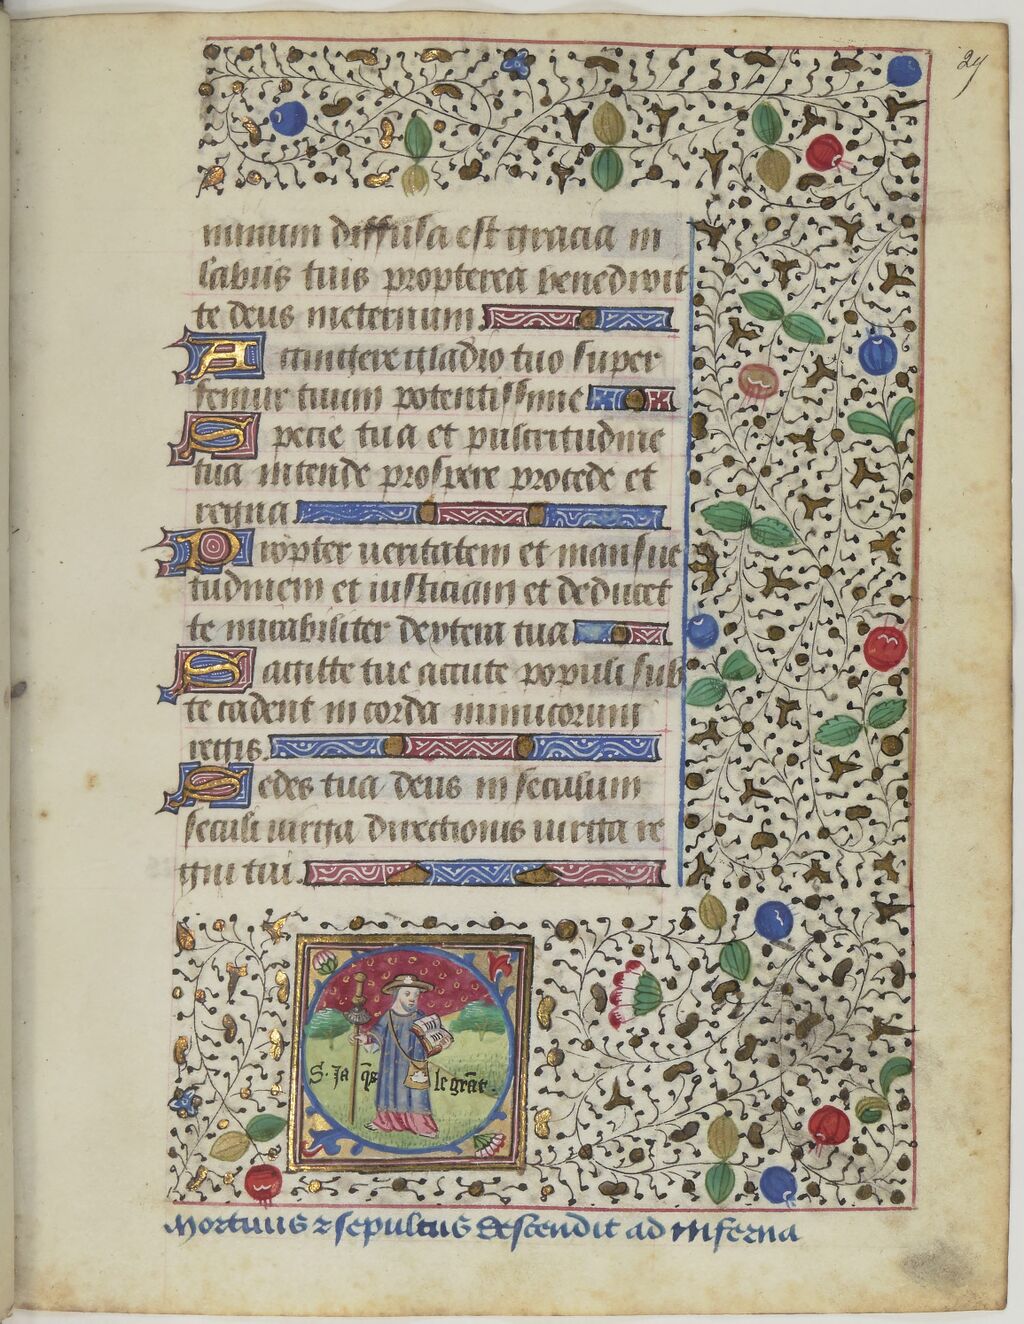 29
minum diffusa est gracia in
labiis tuis propterea benedixit
te deus ineternum
Accingere gladio tuo super
femur tuum potentissime
Specie tua et pulcritudine
tua intende prospere procede et
regna
Propter veritatem et mansue
tudinem et iusticiam et deducet
te mirabiliter dextera tua
Sagitte tue accute populi sub
te cadent in corda inimicorum
regis.
Sedes tua deus in seculum
seculi uirga directionis uirga re
gni tui.
S. Ja q̃s le grãt.
Mortuus & sepultus descendit ad inferna